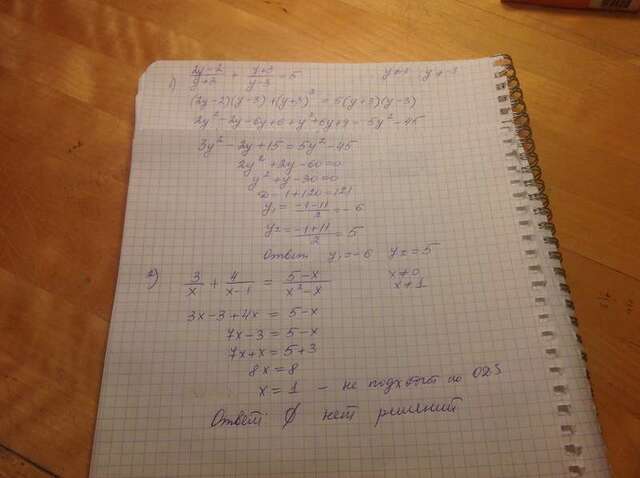 1) (2y-2)/(y+3) + (y+3)/(y-3) = 5 y≠3 y≠-3
(2y-2)(y-3)+(y+3)² = 5(y+3)(y-3)
2y²-2y-6y+6+y²+6y+9=5y²-45
3y²-2y+15=5y²-45
2y²+2y-60=0
y²+y-30=0
D=1+120=121
y₁=(-1-11)/2=-6
y₂=(-1+11)/2=5
Ответ y₁=-6 y₂=5
2) 3/x + 4/(x-1) = (5-x)/(x²-x) x≠0
x≠1
3x-3+4x=5-x
7x-3=5-x
7x+x=5+3
8x=8
x=1 - не подходит по ОДЗ
Ответ ∅ нет решений